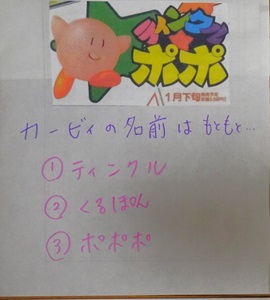 ティンクル
ポポ
1月下旬
カービィの名前はもともと…
①ティンクル
②くるぽん
③ポポポ